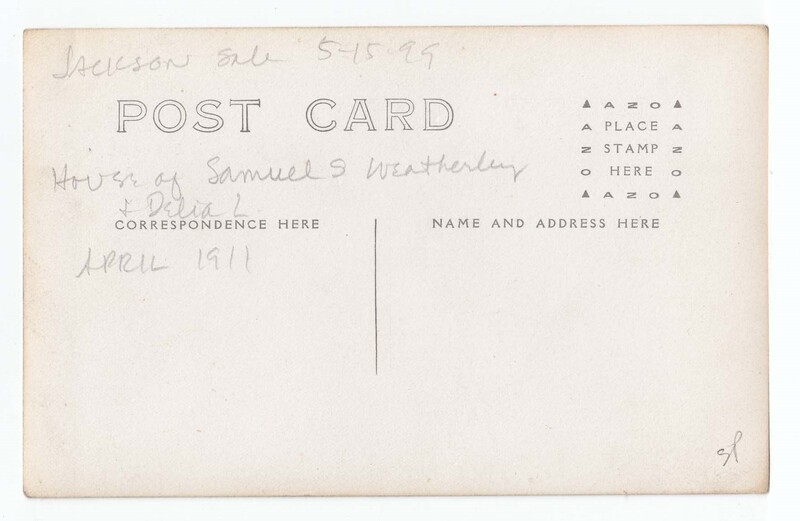 JACKSON Sale 5-15-99
POST CARD
▲ A Z O ▲
A PLACE A
Z STAMP Z
O HERE O
▲ A Z O ▲
House of Samuel S Weatherley
& Delia L.
CORRESPONDENCE HERE
NAME AND ADDRESS HERE
APRIL 1911